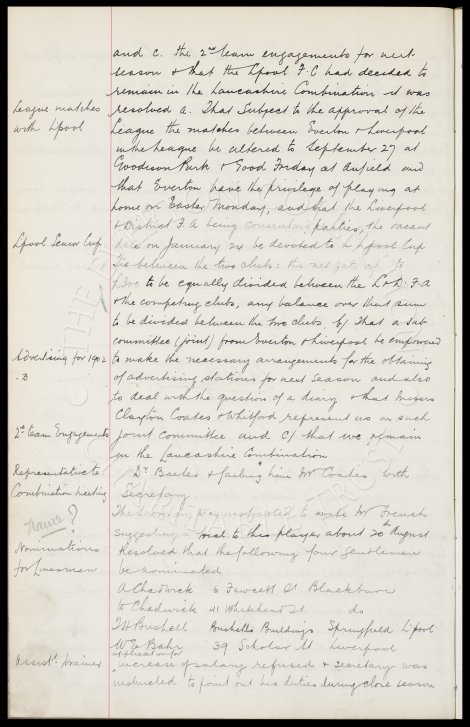 and c. the 2nd team engagements for next
season & that the Lpool F.C had decided to
remain in the Lancashire Combination it was
League matches
with Lpool
resolved a. That subject to the approval of the
League the matches between Everton & Liverpool
in the League be altered to September 27 at
Goodison Park & Good Friday at Anfield and
that Everton have the privilege of playing at
home on Easter Monday, and that the Liverpool
& District F.A being consenting parties, the vacant
Lpool Senior Cup
date on January 24 be devoted to a Lpool Cup
Tie between the two clubs: the net gate up to
£300 to be equally divided between the L & D. F.A
& the competing clubs, any balance over that sum
to be divided between the two clubs, b/ That a sub-
committee (joint) from Everton & Liverpool be empowered
Advertising for 1902
.3
to make the necessary arrangements for the obtaining
of advertising stations for next season and also
to deal with the question of a diary & that Messrs
Clayton Coates & Whitford represent us on such
2nd team Engagements
joint committee and c/ that we remain
in the Lancashire Combination
Representative to
Combination meeting
Dr Baxter & failing him Mr Coates with
Secretary
Name?
The Secretary was instructed to write Mr French
suggesting a trial to this player about 20th August
Nominations
for Linesmen
Resolved that the following four Gentlemen
be nominated
A Chadwick 6 Fawcett St Blackburn
W Chadwick 41 Whitehead St do
T H Bushell Bushells Buildings Springfield L'pool
W E Bahr 39 Scholar St Liverpool
Assistt. trainer
application for
increase of salary refused & Secretary was
instructed to point out his duties during close season